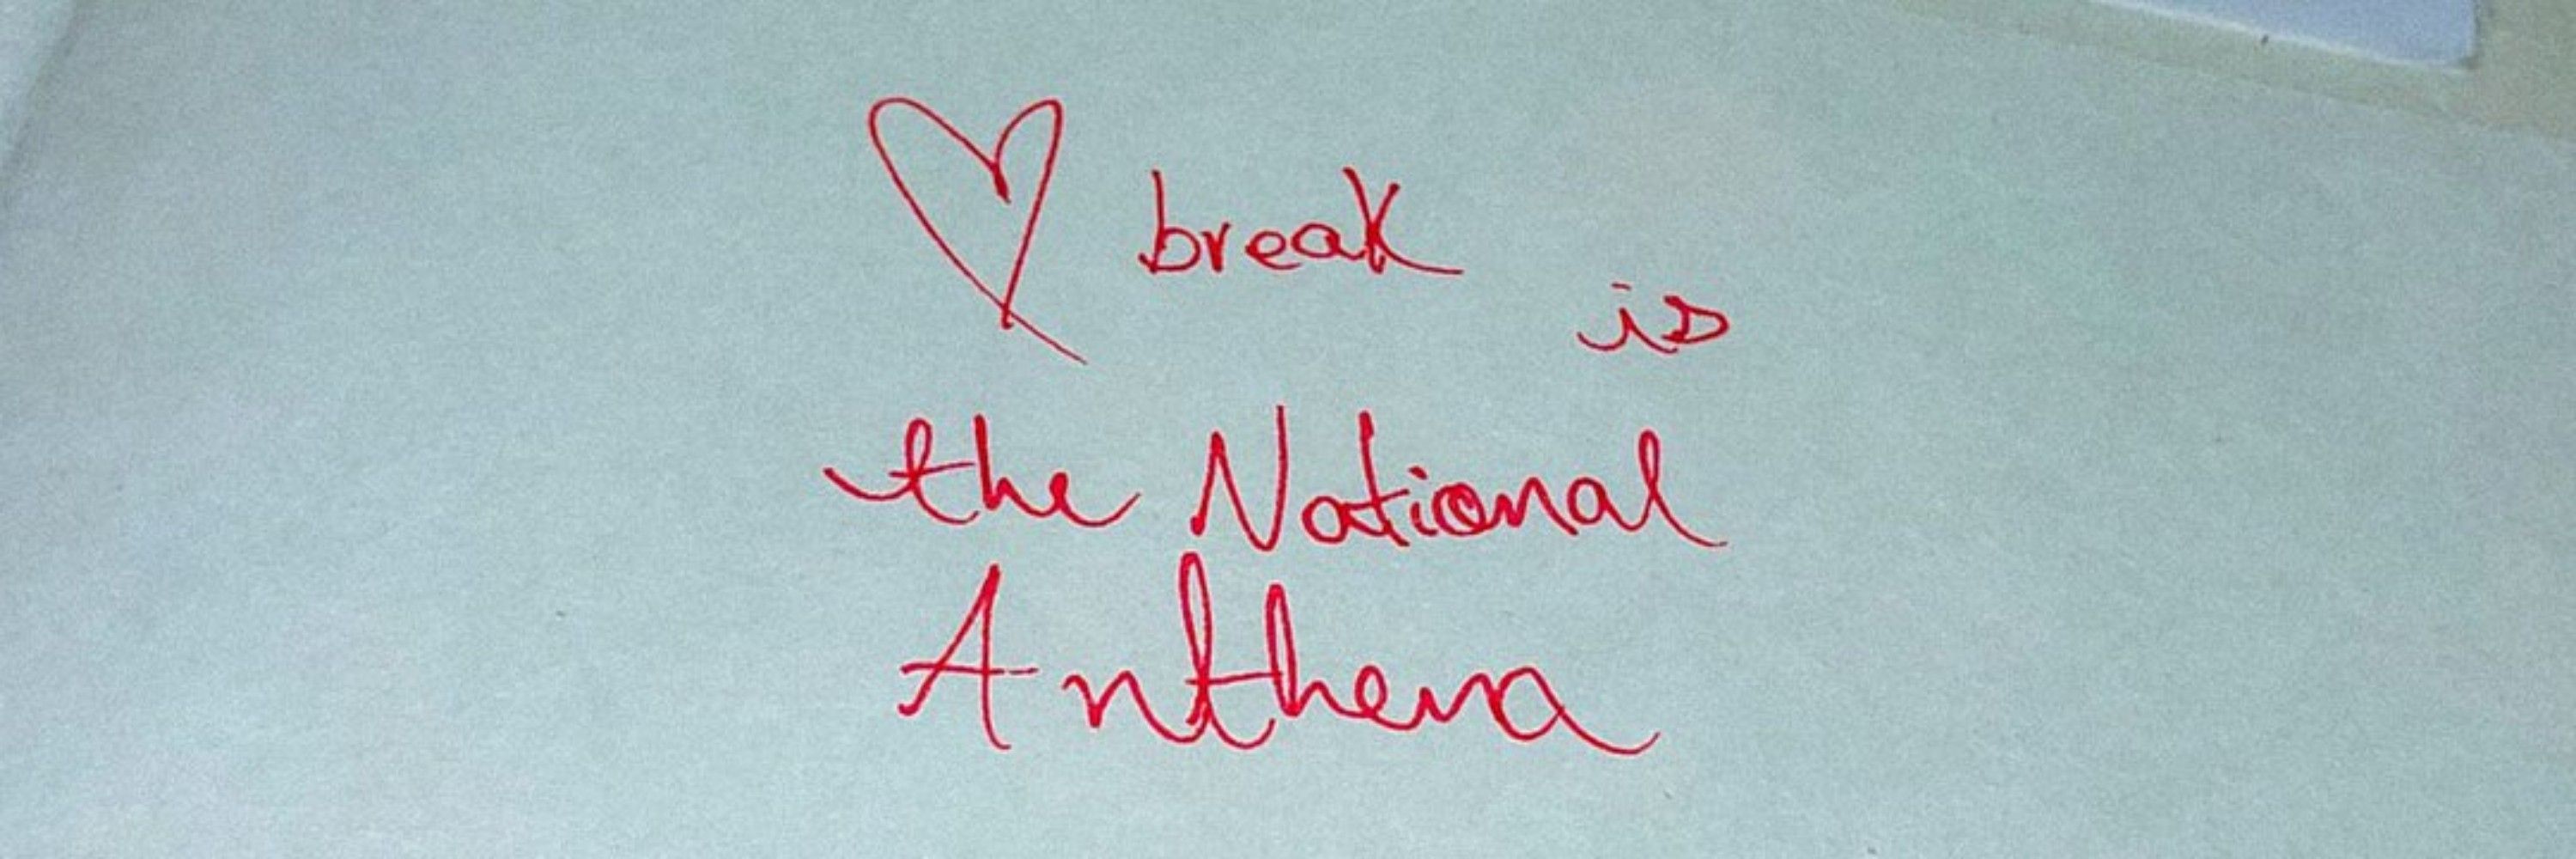 ♡ break is
the National
Anthem